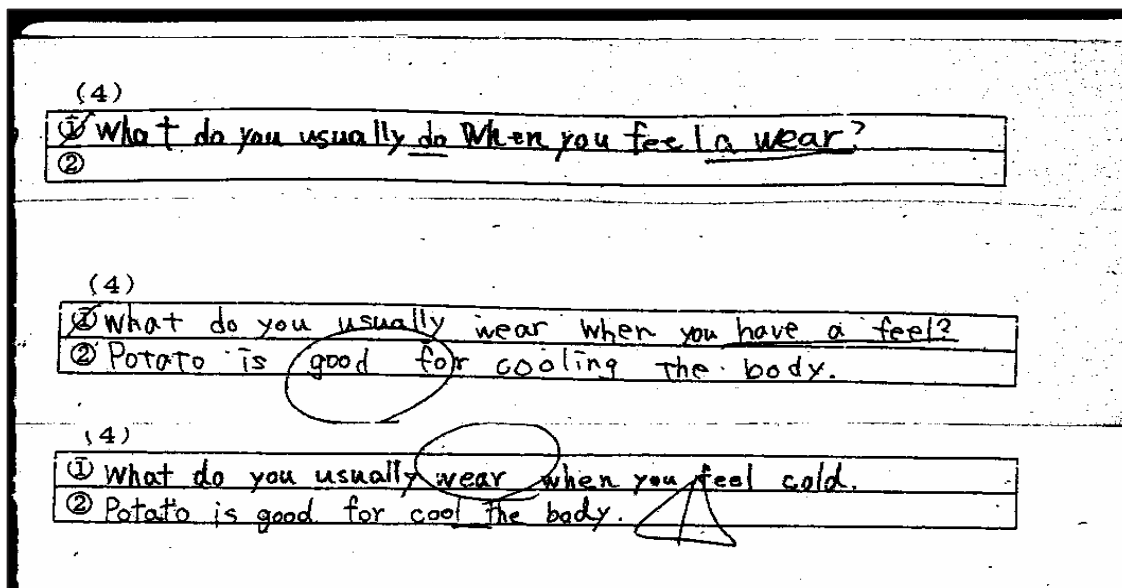 (4)
① What do you usually do when you feel a wear?
②
(4)
① What do you usually wear when you have a feel?
② Potato is good for cooling the body.
(4)
① What do you usually wear when you feel cold.
② Potato is good for cool the body.